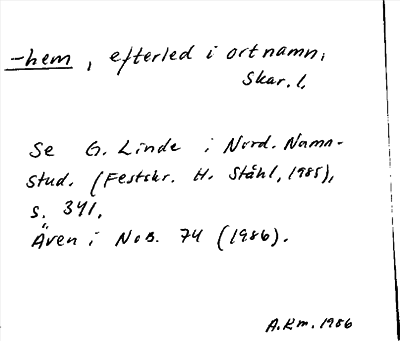 -hem, efterled i ortnamn,
Skar. l.
Se G. Linde i Nord. Namn-
stud. (Festskr. H. Ståhl, 1985),
s. 341.
Även i NoB. 74 (1986).
A.Rm. 1986